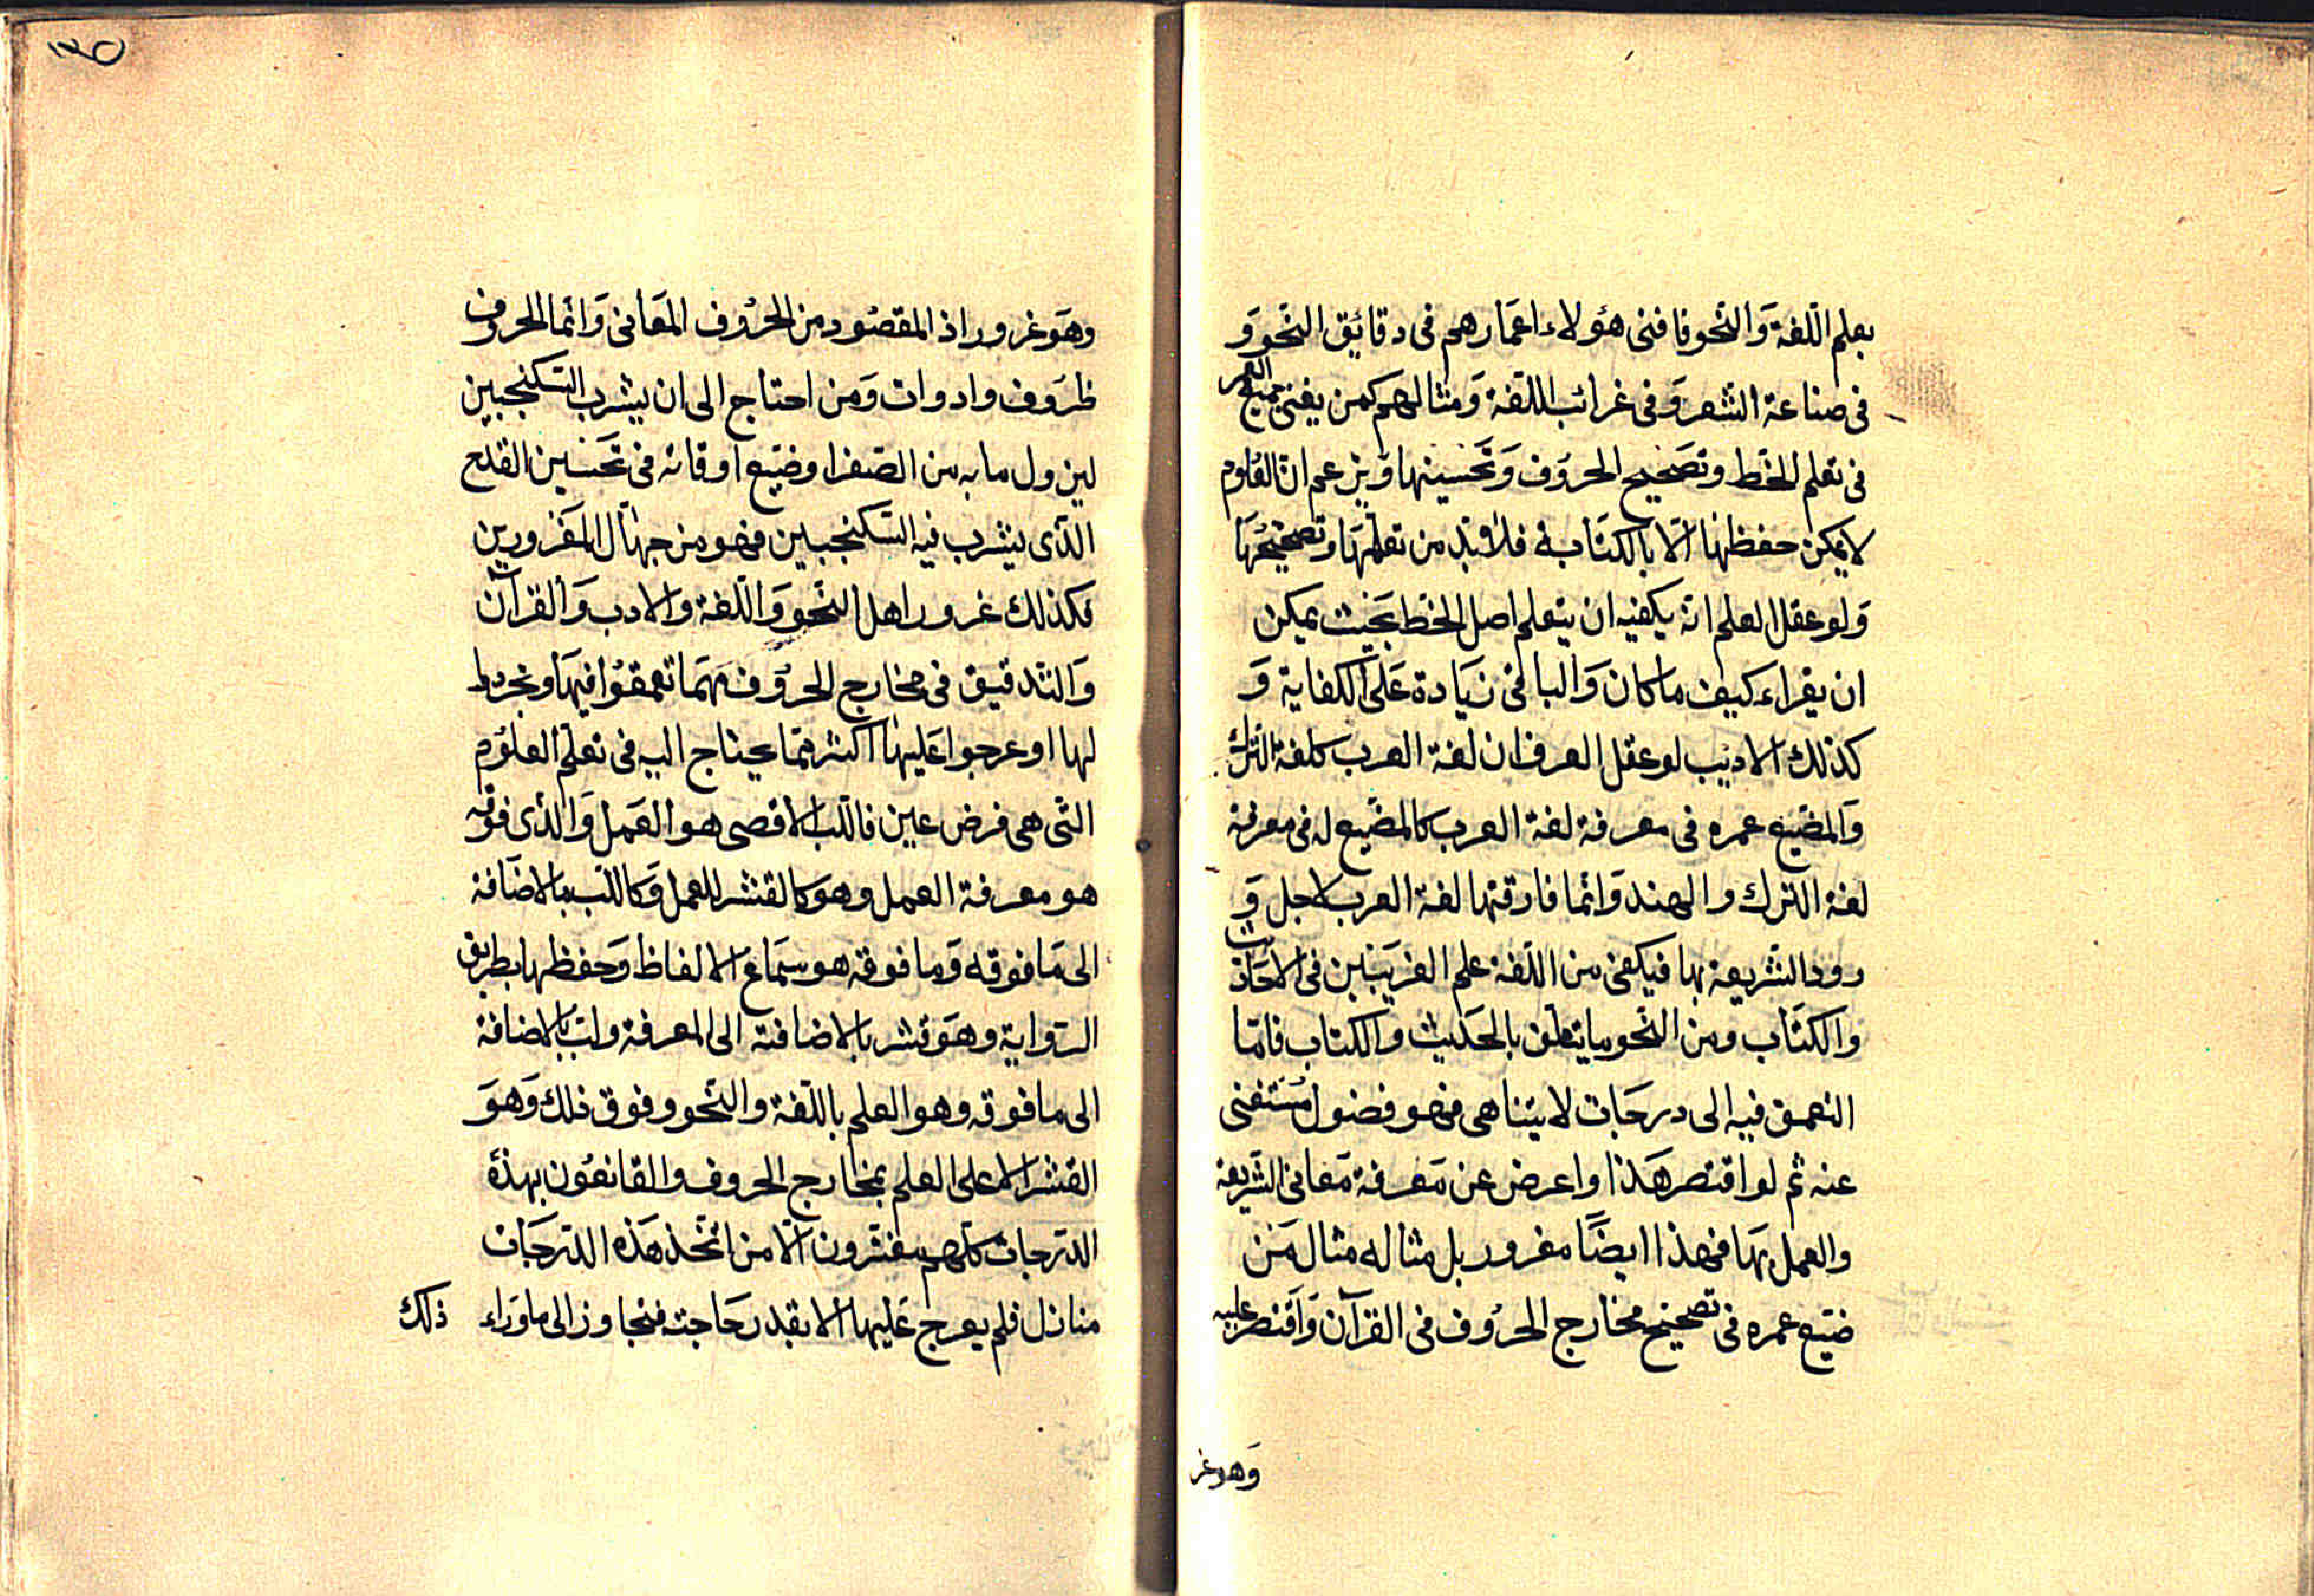 بعلم اللّغة وَالنّحو فافنى هؤلاء اعمَارهم فى دقائيق النحو وَ
فى صناعة الشعر وَفى غرائب اللّغة وَمثالهم كمن يفنى جميع العمر
فى تعلم الخط وتصَحيح الحروُف وَتحَسينها وَيزعم انّ العُلوم
لا يمكن حفظهَا الّا بالكتَابة فلا بُدّ من تعلّمهَا وتصحيحُهَا
وَلو عقل العلم انّه يكفيه ان يتعلم اصل الخط بحَيث يمكن
ان يقراء كيف ما كان وَالباقى زيَادة عَلىَ الكفاية وَ
كذلك الاديب لو عقل العرف ان لغة العرب كلغة الترك
وَالمضيّع عمره فى معرفة لغة العرب كالمضيّع له فى معرفة
لغة الترك والهند وَانما فارقتها لغة العرب لاجل وَ
رود الشريعة بها فيكفى من اللّغة علم الغريَبين فى الاحَاديث
والكتَاب ومن النّحو ما يتعلّق بالحَديث والكتاب فامّا
التعمق فيه الى درجَات لا يتناهى فهو فضول مُستغنى
عنه ثم لو اقتصر هَذا واعرض عن مَعرفة مَعانى الشريعة
والعمل بهَا فهذا ايضًا مغرور بل مثاله مثال مَن
ضيّع عمره فى تصحيح مخارج الحرُوف فى القرآن وَاقتصر عليه
وَهو غر
١٣٥
وهَو غرور اذ المقصُود من الحرُوف المَعانى وَانّما الحروف
ظرَوف وادوات وَمن احتاج الى ان يشرب السّكنجبين
ليزول ما به من الصّفرا وضيّع اوقاته فى تحَسين القدح
الذّى يشرب فيه السّكنجبين فهو من جهّال المَغرورين
فكذلك غرور اهل النّحو وَاللّغة والادب وَالقرآن
وَالتّدقيق فى مخارج الحروُف مهمَا تعمّقُوا فيهَا وتجرّدوا
لها او عرجوا عَليهَا اكثر ممّا يحتاج اليه فى تعلّم العلوُم
التّى هى فرض عين فاللّب الاقصى هو العَمل وَالذّى فوقه
هو معرفة العمل وهوَ كالقشر للعمل وَكاللّب بالاضَافة
الى مَا فوقه وَما فوقه هو سمَاع الالفاظ وَحفظها بطريق
الرّواية وهَو قشر بالاضافة الى المعرفة ولبّ بالاضافة
الى ما فوقه وهو العلم باللّغة والنّحو وفوق ذلك وَهوَ
القشر الاعلى العلم بمخارج الحروف والقانعُون بهذه
الدّرجات كلّهم مغترون الّا من اتّخذ هَذه الدّرجَات
منازل فلم يعرج عَليها الا بقدر حَاجته فتجاوز الى ما وَراء ذلك